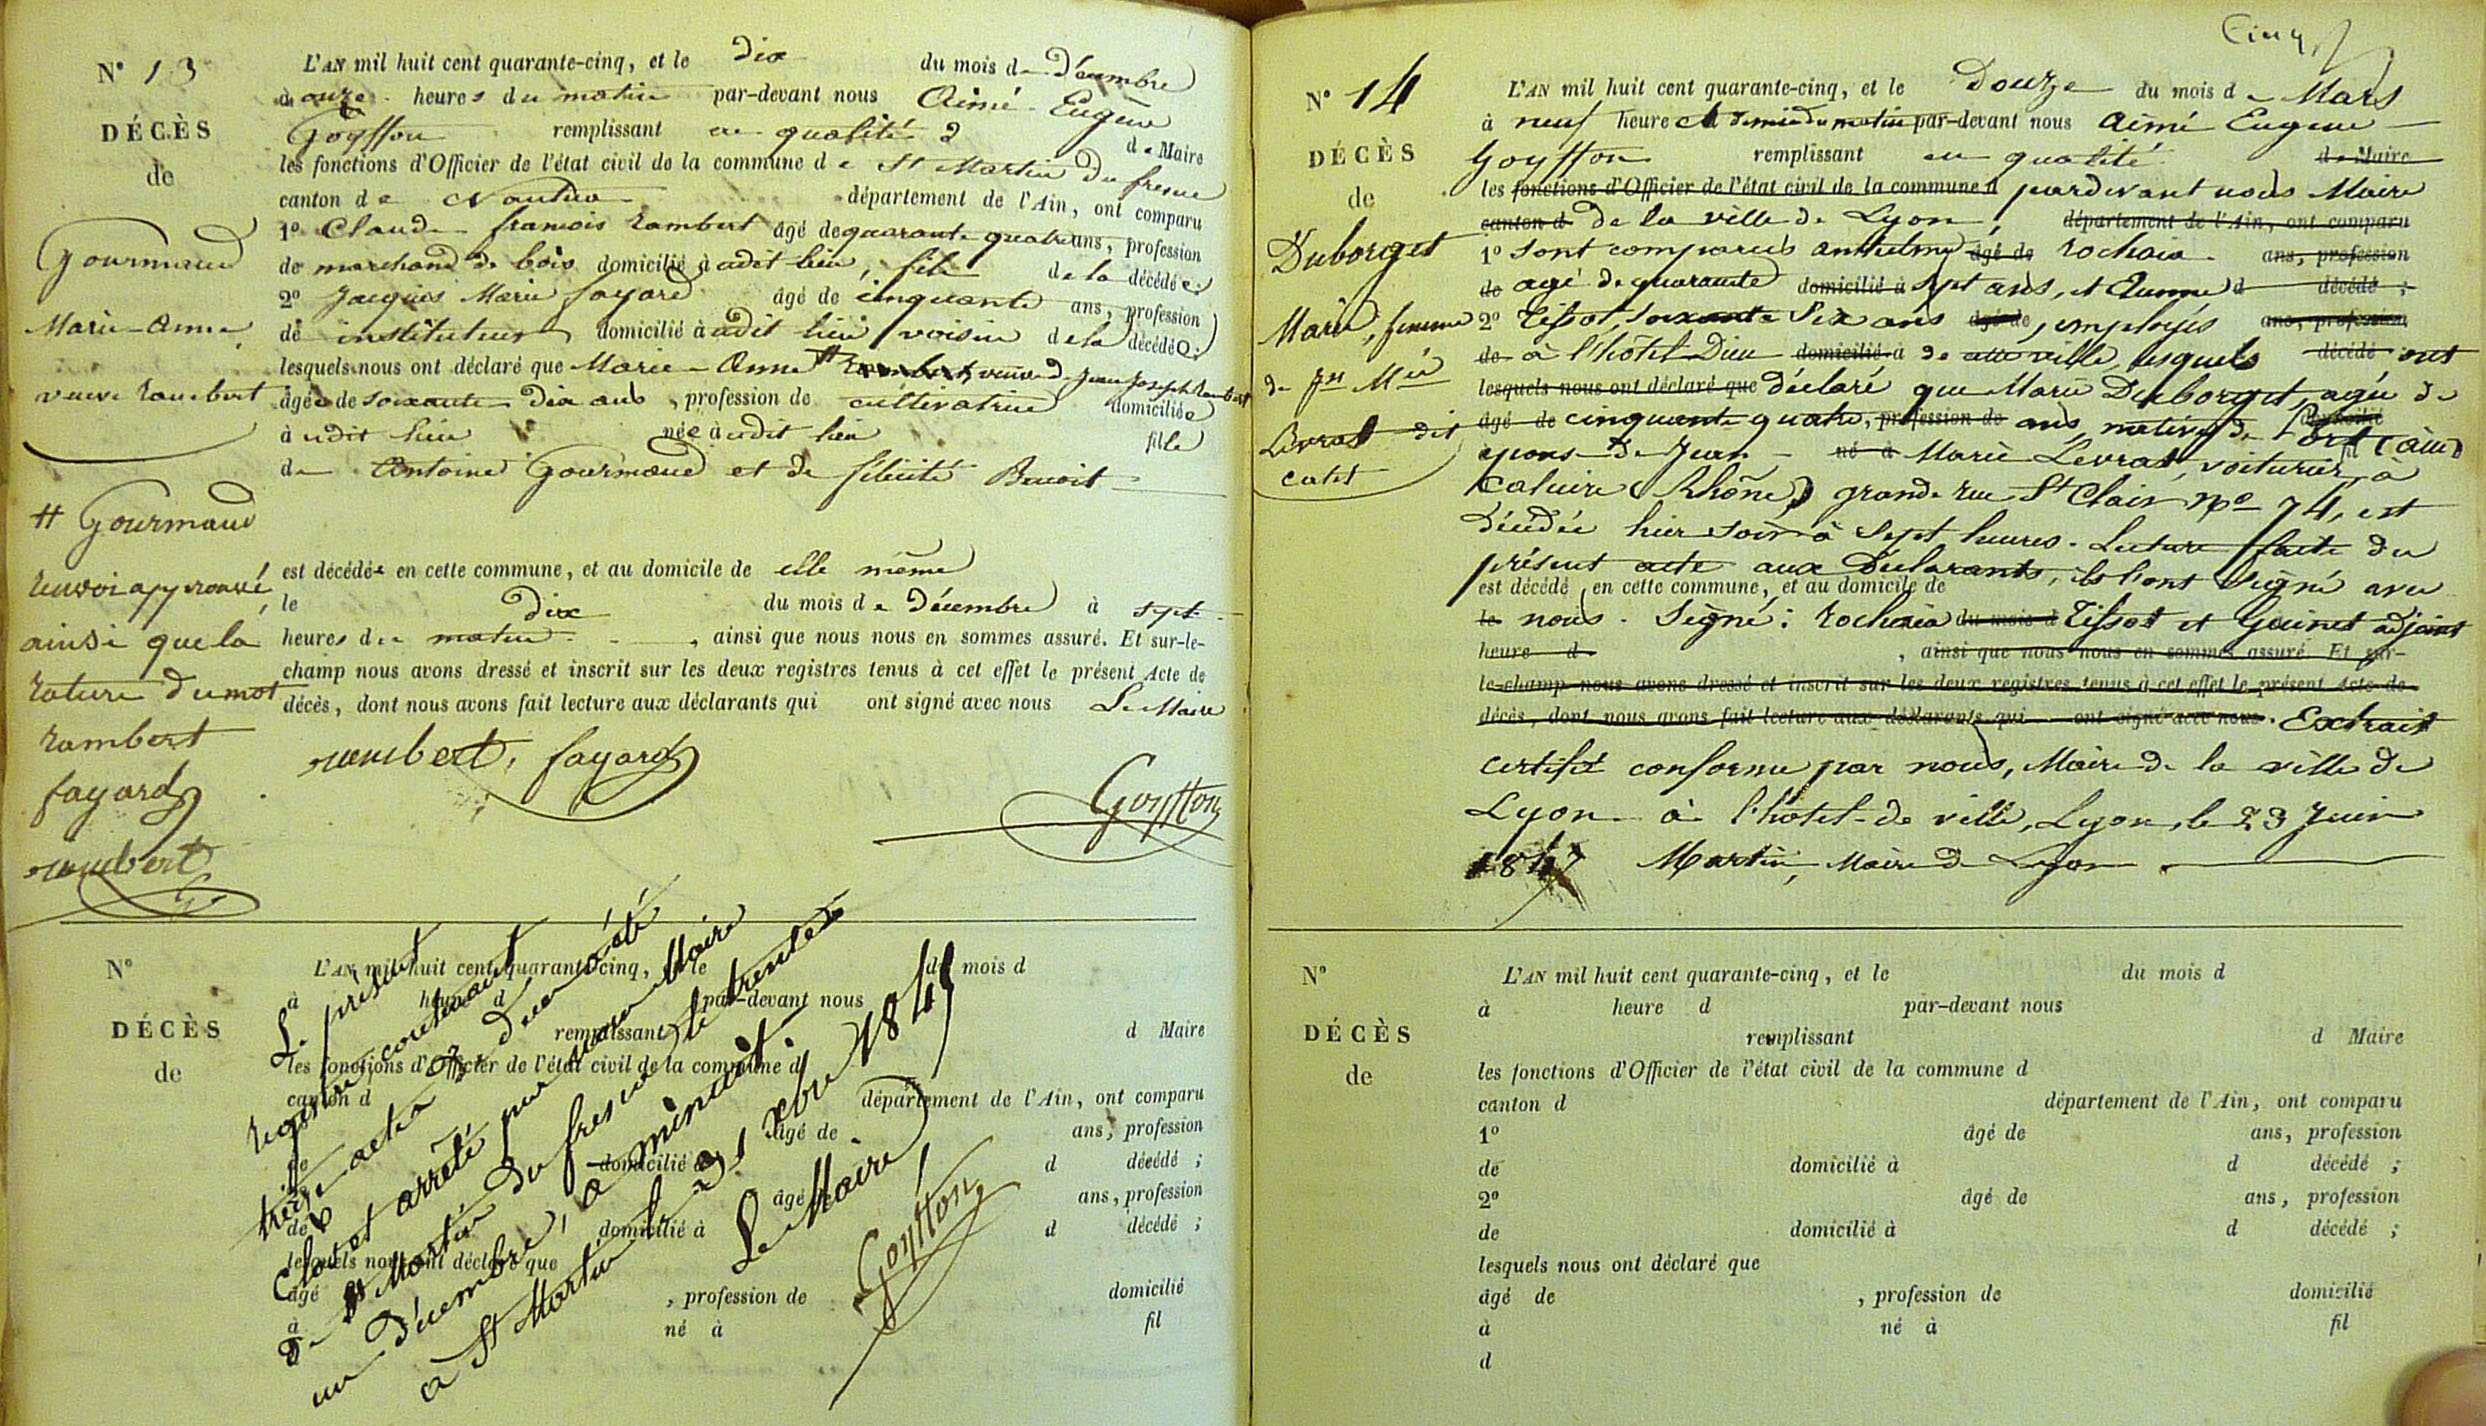 N° 13
DÉCÈS
de
Gourmand
Marie-Anne
veuve Rambert
# Gourmand
renvoi approuvé,
ainsi que la
rature du mot
rambert
fayard
rambert
L'AN mil huit cent quarante-cinq, et le dix du mois de Décembre
à onze heures du matin par-devant nous Aimé Eugène
Goyffon remplissant en qualité de Maire
les fonctions d'Officier de l'état civil de la commune de St Martin du fresne
canton de Nantua département de l'Ain, ont comparu
1° Claude françois Rambert âgé de quarante quatre ans, profession
de marchand de bois domicilié à udit lieu, fils de la décédée;
2° Jacques Marie fayard âgé de cinquante ans, profession
de instituteur domicilié à udit lieu voisin de la décédée;
lesquels nous ont déclaré que Marie-Anne # Rambert, veuve de Jean Joseph Rambert
âgée de soixante dix ans, profession de cultivatrice domiciliée
à udit lieu née à udit lieu fille
de Antoine Gourmand et de félicité Benoit
est décédée en cette commune, et au domicile de elle même
le dix du mois de Décembre à sept
heures du matin, ainsi que nous nous en sommes assuré. Et sur-le-
champ nous avons dressé et inscrit sur les deux registres tenus à cet effet le présent Acte de
décès, dont nous avons fait lecture aux déclarants qui ont signé avec nous Le Maire
rambert, fayard
Goyffon
N°
DÉCÈS
de
L'AN mil huit cent quarante-cinq, et le du mois d
à heure d par-devant nous
remplissant d Maire
les fonctions d'Officier de l'état civil de la commune d
canton d département de l'Ain, ont comparu
1° âgé de ans, profession
de domicilié à d décédé ;
2° âgé de ans, profession
de domicilié à d décédé ;
lesquels nous ont déclaré que
âgé de , profession de domicilié
à né à fil
d
Le présent
registre contenant
treize actes de décès a été
Clos et arrêté par nous Maire
de St Martin du fresne le trente
un Décembre, à minuit
a St Martin le 31 Xbre 1845
Le Maire
Goyffon
Cinq
N° 14
DÉCÈS
de
Duborget
Marie, femme
de Jn Mie
Levrat dit
catet
L'AN mil huit cent quarante-cinq, et le Douze du mois de Mars
à neuf heure et demie du matin par-devant nous Aimé Eugène
Goyffon remplissant en qualité de Maire
les fonctions d'Officier de l'état civil de la commune d pardevant nous Maire
canton d de la ville de Lyon, département de l'Ain, ont comparu
1° sont comparus anthelme âgé de rochaix ans, profession
de agé de quarante domicilié à sept ans, et d décédé ;
2° Tissot, soixante six ans âgé de, employés ans, profession
de à l'hôtel Dieu domicilié à de cette ville, lesquels décédé ont
lesquels nous ont déclaré que déclaré que Marie Duborget, agée de
âgé de cinquante quatre, profession de ans native de Port (ain) domicilié
epouse de Jean né à Marie Levrat, voiturier, à fil
caluire (Rhône) grande rue St Clair No 74, est
Décédée hier soir à sept heures. Lecture faite du
présent acte aux Déclarants, ils l'ont signé avec
est décédé en cette commune, et au domicile de
le nous. Signé: rochaix du mois d Tissot et Guinet adjoint
heure d , ainsi que nous nous en sommes assuré. Et sur-
le-champ nous avons dressé et inscrit sur les deux registres tenus à cet effet le présent Acte de
décès, dont nous avons fait lecture aux déclarants qui ont signé avec nous. Extrait
certifié conforme par nous, Maire de la ville de
Lyon à l'hôtel-de ville, Lyon, le 23 Juin
1847 Martin, Maire de Lyon.
N°
DÉCÈS
de
L'AN mil huit cent quarante-cinq, et le du mois d
à heure d par-devant nous
remplissant d Maire
les fonctions d'Officier de l'état civil de la commune d
canton d département de l'Ain, ont comparu
1° âgé de ans, profession
de domicilié à d décédé ;
2° âgé de ans, profession
de domicilié à d décédé ;
lesquels nous ont déclaré que
âgé de , profession de domicilié
à né à fil
d